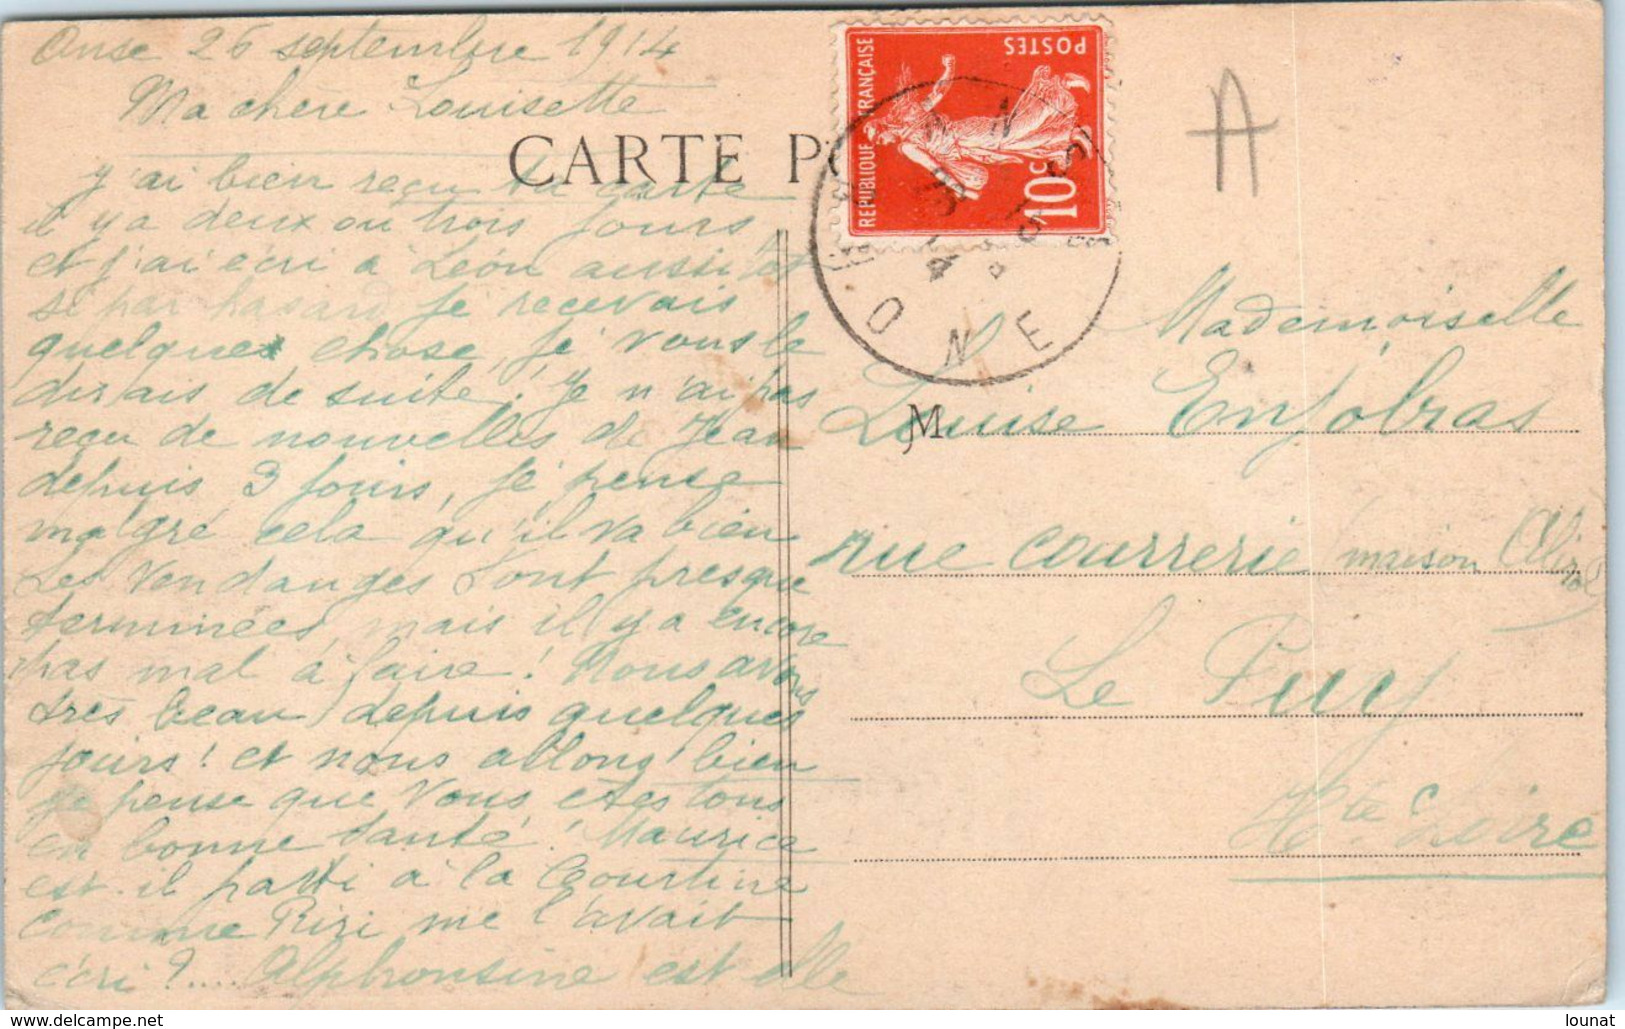 Anse 26 septembre 1914
Ma chère Louisette
CARTE PO
j'ai bien reçu ta carte
il y a deux ou trois jours
et j'ai écri à Léon aussitôt
si par hasard je recevais
quelque chose, je vous le
dirais de suite. Je n'ai pas
reçu de nouvelles de Jean
depuis 3 jours, je pense
malgré cela qu'il va bien
Les vendanges sont presque
terminées, mais il y a encore
pas mal à faire! Nous avons
très beau depuis quelques
jours! et nous allons bien
je pense que vous êtes tous
en bonne santé! Maurice
est-il parti à la Courtine
comme Riri me l'avait
écri?.... Alphonsine est elle
REPUBLIQUE FRANÇAISE
POSTES
10c
ONE
A
Mademoiselle
M Louise Enjolras
rue Courrerie (maison
Le Puy
Hte Loire
delcampe.net
lounat